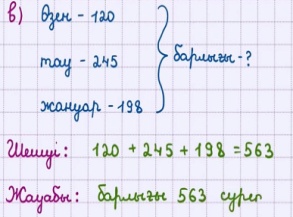 в) өзен - 120
тау - 245
жануар - 198
барлығы - ?
Шешуі: 120 + 245 + 198 = 563
Жауабы: барлығы 563 сурет